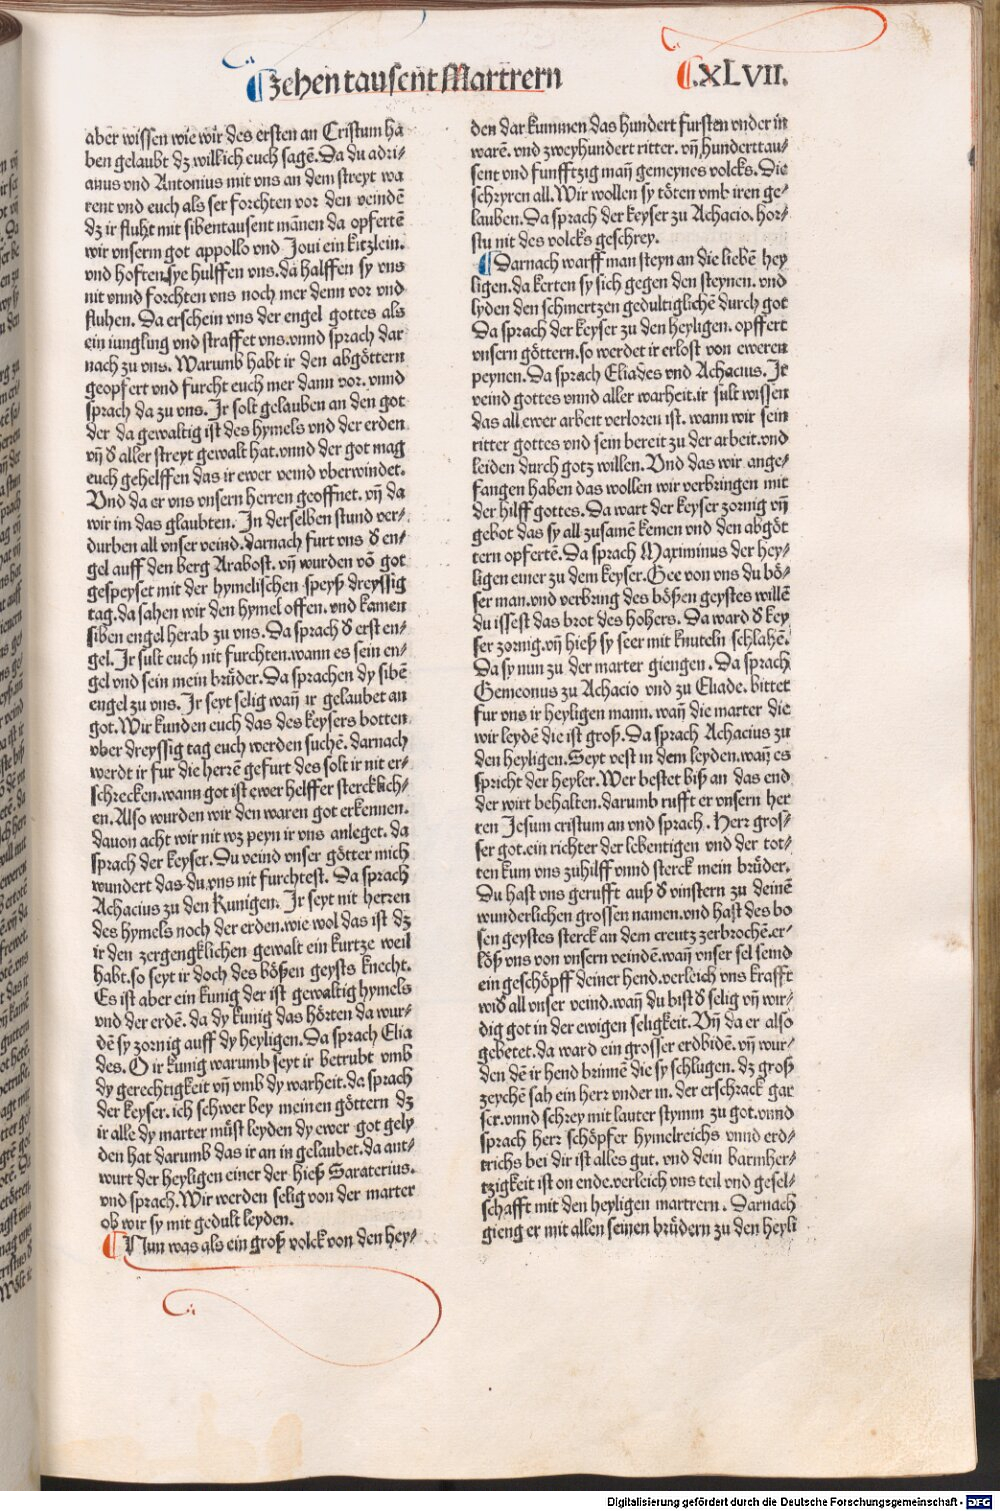 zehen tausent Martrern
.XLVII.
aber wissen wie wir des ersten an Cristum ha
ben gelaubt dz wil ich euch sagē. Da du adri⸗
anus vnd Antonius mit vns an dem streyt wa
rent vnd euch als ser forchten vor den veindē
dz ir fluht mit sibentausent mānen da opfertē
wir vnserm got appollo vnd Joui ein kitzlein.
vnd hoften sye hulffen vns. da halffen sy vns
nit vnnd forchten vns noch mer denn vor vnd
fluhen. Da erschein vns der engel gottes als
ein iungling vnd straffet vns. vnnd sprach dar
nach zu vns. Warumb habt ir den abgöttern
geopfert vnd furcht euch mer dann vor. vnnd
sprach da zu vns. Jr solt gelauben an den got
der da gewaltig ist des hymels vnd der erden
vn̄ d̓ aller streyt gewalt hat. vnnd der got mag
euch gehelffen das ir ewer veind vberwindet.
Vnd da er vns vnsern herren geoffnet. vn̄ da
wir im das glaubten. In derselben stund ver⸗
durben all vnser veind. darnach furt vns d̓ en⸗
gel auff den berg Arabost. vn̄ wurden vō got
gespeyset mit der hymelischen speyß dreyssig
tag. da sahen wir den hymel offen. vnd kamen
siben engel herab zu vns. Da sprach d̓ erst en⸗
gel. Jr sult euch nit furchten. wann es sein en⸗
gel vnd sein mein brüder. Da sprachen dy sibē
engel zu vns. Jr seyt selig wan̄ ir gelaubet an
got. Wir kunden euch das des keysers botten
vber dreyssig tag euch werden suchē. darnach
werdt ir fur die herrē gefurt des solt ir nit er⸗
schrecken. wann got ist ewer helffer stercklich⸗
en. Also wurden wir den waren got erkennen.
dauon acht wir nit wz peyn ir vns anleget. da
sprach der keyser. Du veind vnser götter mich
wundert das du vns nit furchtest. Da sprach
Achacius zu den Kunigen. Jr seyt nit herren
des hymels noch der erden. wie wol das ist dz
ir den zergengklichen gewalt ein kurtze weil
habt. so seyt ir doch des bößen geysts knecht.
Es ist aber ein kunig der ist gewaltig hymels
vnd der erdē. da dy kunig das hörten da wur⸗
dē sy zornig auff dy heyligen. Da sprach Elia
des. O ir kunig warumb seyt ir betrubt vmb
dy gerechtigkeit vn̄ vmb dy warheit. da sprach
der keyser. ich schwer bey meinen göttern dz
ir alle dy marter müst leyden dy ewer got gely
den hat darumb das ir an in gelaubet. da ant⸗
wurt der heyligen einer der hieß Saraterius.
vnd sprach. Wir werden selig von der marter
ob wir sy mit gedult leyden.
Nun was als ein groß volck von den hey⸗
den dar kummen das hundert fursten vnder in
warē. vnd zweyhundert ritter. vn̄ hunderttau⸗
sent vnd funfftzig man̄ gemeynes volcks. Die
schryren all. Wir wollen sy töten vmb iren ge⸗
lauben. Da sprach der keyser zu Achacio. hor⸗
stu nit des volcks geschrey.
Darnach warff man steyn an die liebē hey
ligen. da kerten sy sich gegen den steynen. vnd
lyden den schmertzen gedultiglichē durch got
Da sprach der keyser zu den heyligen. opffert
vnsern göttern. so werdet ir erlost von eweren
peynen. Da sprach Eliades vnd Achacius. Jr
veind gottes vnnd aller warheit. ir sult wissen
das all ewer arbeit verloren ist. wann wir sein
ritter gottes vnd sein bereit zu der arbeit. vnd
leiden durch gotz willen. Vnd das wir ange⸗
fangen haben das wollen wir verbringen mit
der hilff gottes. Da wart der keyser zornig vn̄
gebot das sy all zusamē kemen vnd den abgöt
tern opfertē. Da sprach Maximinus der hey⸗
ligen einer zu dem keyser. Gee von vns du bö⸗
ser man. vnd verbring des bößen geystes willē
du issest das brot des hohers. Da ward d̓ key
ser zornig. vn̄ hieß sy seer mit knuteln schlahē.
Da sy nun zu der marter giengen. Da sprach
Gemeonus zu Achacio vnd zu Eliade. bittet
fur vns ir heyligen mann. wan̄ die marter die
wir leydē die ist groß. Da sprach Achacius zu
den heyligen. Seyt vest in dem leyden. wan̄ es
spricht der heyler. Wer bestet biß an das end
der wirt behalten. darumb rufft er vnsern her
ren Jesum cristum an vnd sprach. Herr gros⸗
ser got. ein richter der lebentigen vnd der tot⸗
ten kum vns zuhilff vnnd sterck mein brüder.
Du hast vns gerufft auß d̓ vinstern zu deinē
wunderlichen grossen namen. vnd hast des bo
sen geystes sterck an dem creutz zerbrochē. er⸗
löß vns von vnsern veindē. wan̄ vnser sel seind
ein geschöpff deiner hend. verleich vns krafft
wid̓ all vnser veind. wan̄ du bist d̓ selig vn̄ wir⸗
dig got in der ewigen seligkeit. Vn̄ da er also
gebetet. da ward ein grosser erdbidē. vn̄ wur⸗
den dē ir hend brinnē die sy schlugen. dz groß
zeychē sah ein herr vnder in. der erschrack gar
ser. vnnd schrey mit lauter stymm zu got. vnnd
sprach herr schöpfer hymelreichs vnnd erd⸗
trichs bei dir ist alles gut. vnd dein barmher⸗
tzigkeit ist on ende. verleich vns teil vnd gesel⸗
schafft mit den heyligen martrern. Darnach
gieng er mit allen seinen brüdern zu den heyli
Digitalisierung gefördert durch die Deutsche Forschungsgemeinschaft - DFG